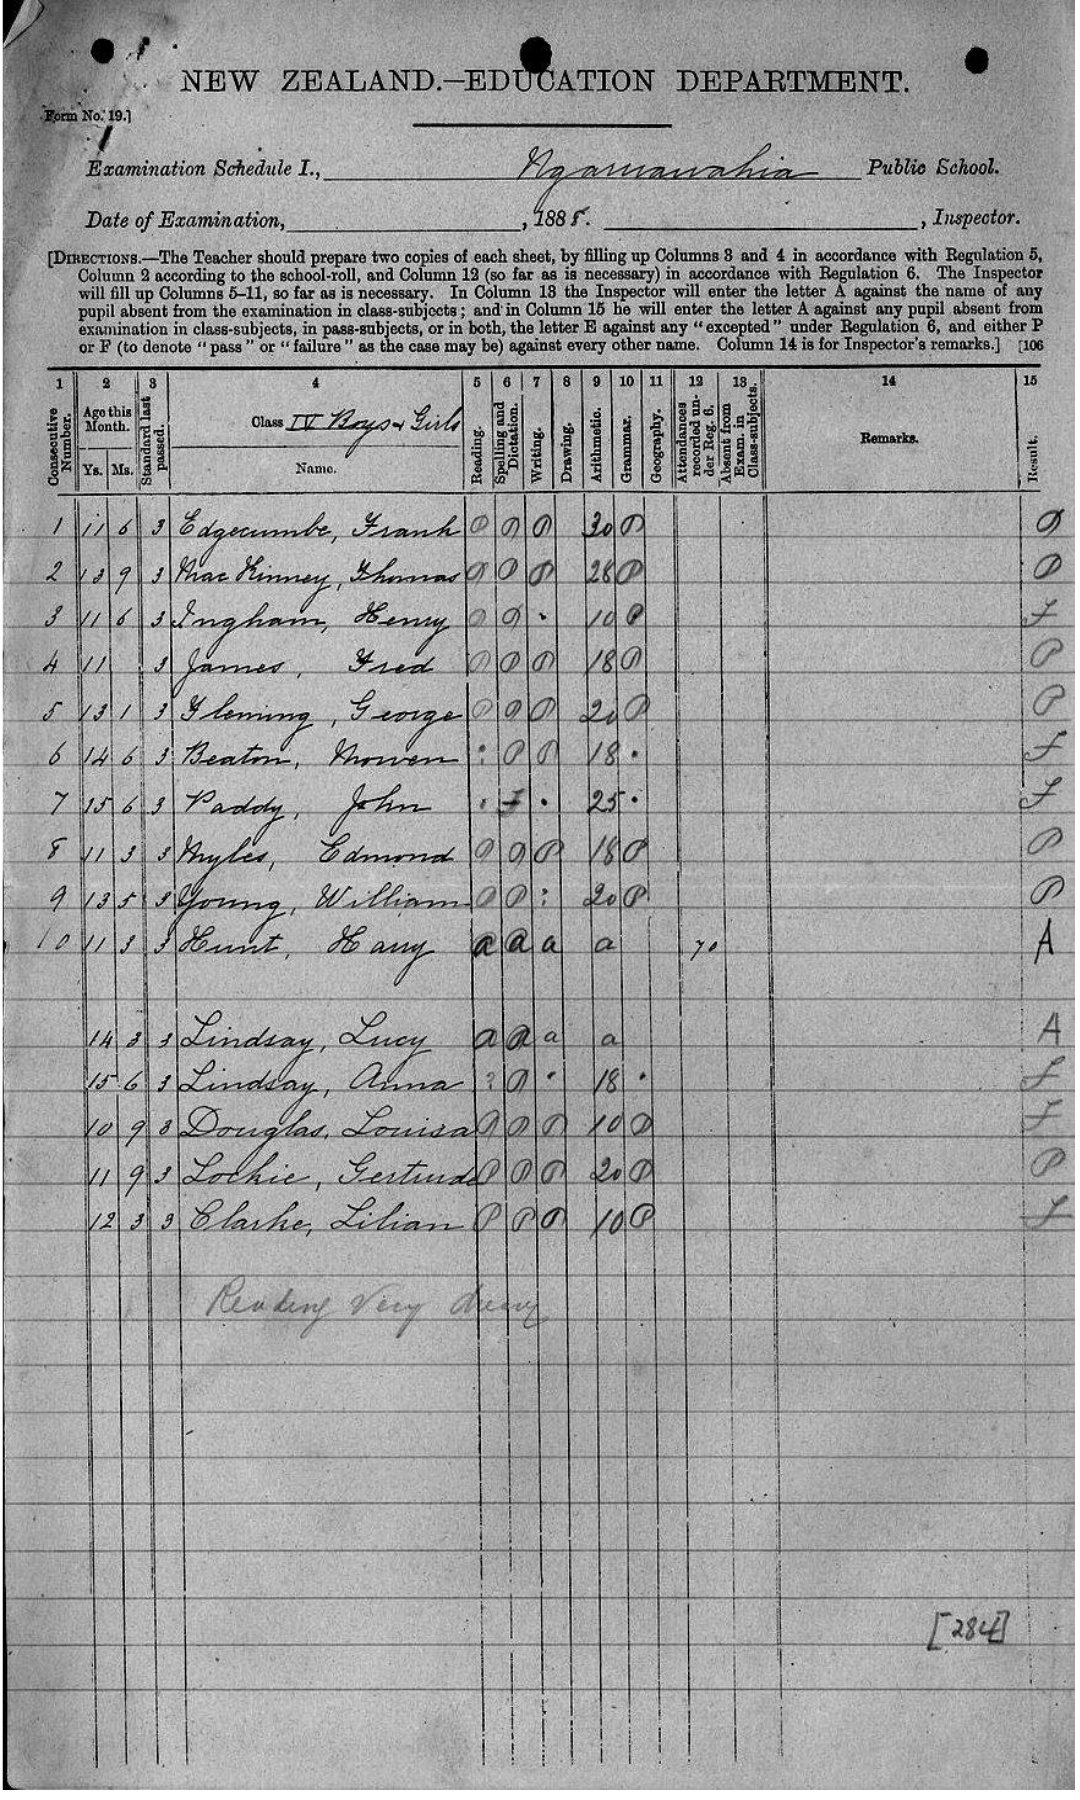 NEW ZEALAND.—EDUCATION DEPARTMENT.
Form No. 19.]
Examination Schedule I., Ngaruawahia Public School.
Date of Examination, , 1885. , Inspector.
[DIRECTIONS.—The Teacher should prepare two copies of each sheet, by filling up Columns 3 and 4 in accordance with Regulation 5,
Column 2 according to the school-roll, and Column 12 (so far as is necessary) in accordance with Regulation 6. The Inspector
will fill up Columns 5–11, so far as is necessary. In Column 13 the Inspector will enter the letter A against the name of any
pupil absent from the examination in class-subjects; and in Column 15 he will enter the letter A against any pupil absent from
examination in class-subjects, in pass-subjects, or in both, the letter E against any "excepted" under Regulation 6, and either P
or F (to denote "pass" or "failure" as the case may be) against every other name. Column 14 is for Inspector's remarks.] [106
1 2 3 4 5 6 7 8 9 10 11 12 13 14 15
Consecutive Number. Age this Month. Ys. Ms. Standard last passed. Class IV Boys & Girls Name. Reading. Spelling and Dictation. Writing. Drawing. Arithmetic. Grammar. Geography. Attendances recorded under Reg. 6. Absent from Exam. in Class-subjects. Remarks. Result.
1 11 6 3 Edgecumbe, Frank P P P 30 P P
2 13 9 3 MacKinney, Thomas P P P 28 P P
3 11 6 3 Ingham, Henry P P . 10 P F
4 11 3 James, Fred P P P 18 P P
5 13 1 3 Fleming, George P P P 20 P P
6 14 6 3 Beaton, : P P 18 . F
7 15 6 3 Paddy, John . F . 25 . F
8 11 3 3 Myles, Edmond P P P 18 P P
9 13 5 3 Young, William P P : 20 P P
10 11 3 3 Hunt, Harry a a a a 70 A
14 3 3 Lindsay, Lucy a a a a A
15 6 3 Lindsay, Anna ? P . 18 . F
10 9 3 Douglas, Louisa P P P 10 P F
11 9 3 Lockie, Gertrude P P P 20 P P
12 3 3 Clarke, Lilian P P P 10 P F
Reading Very
[284]